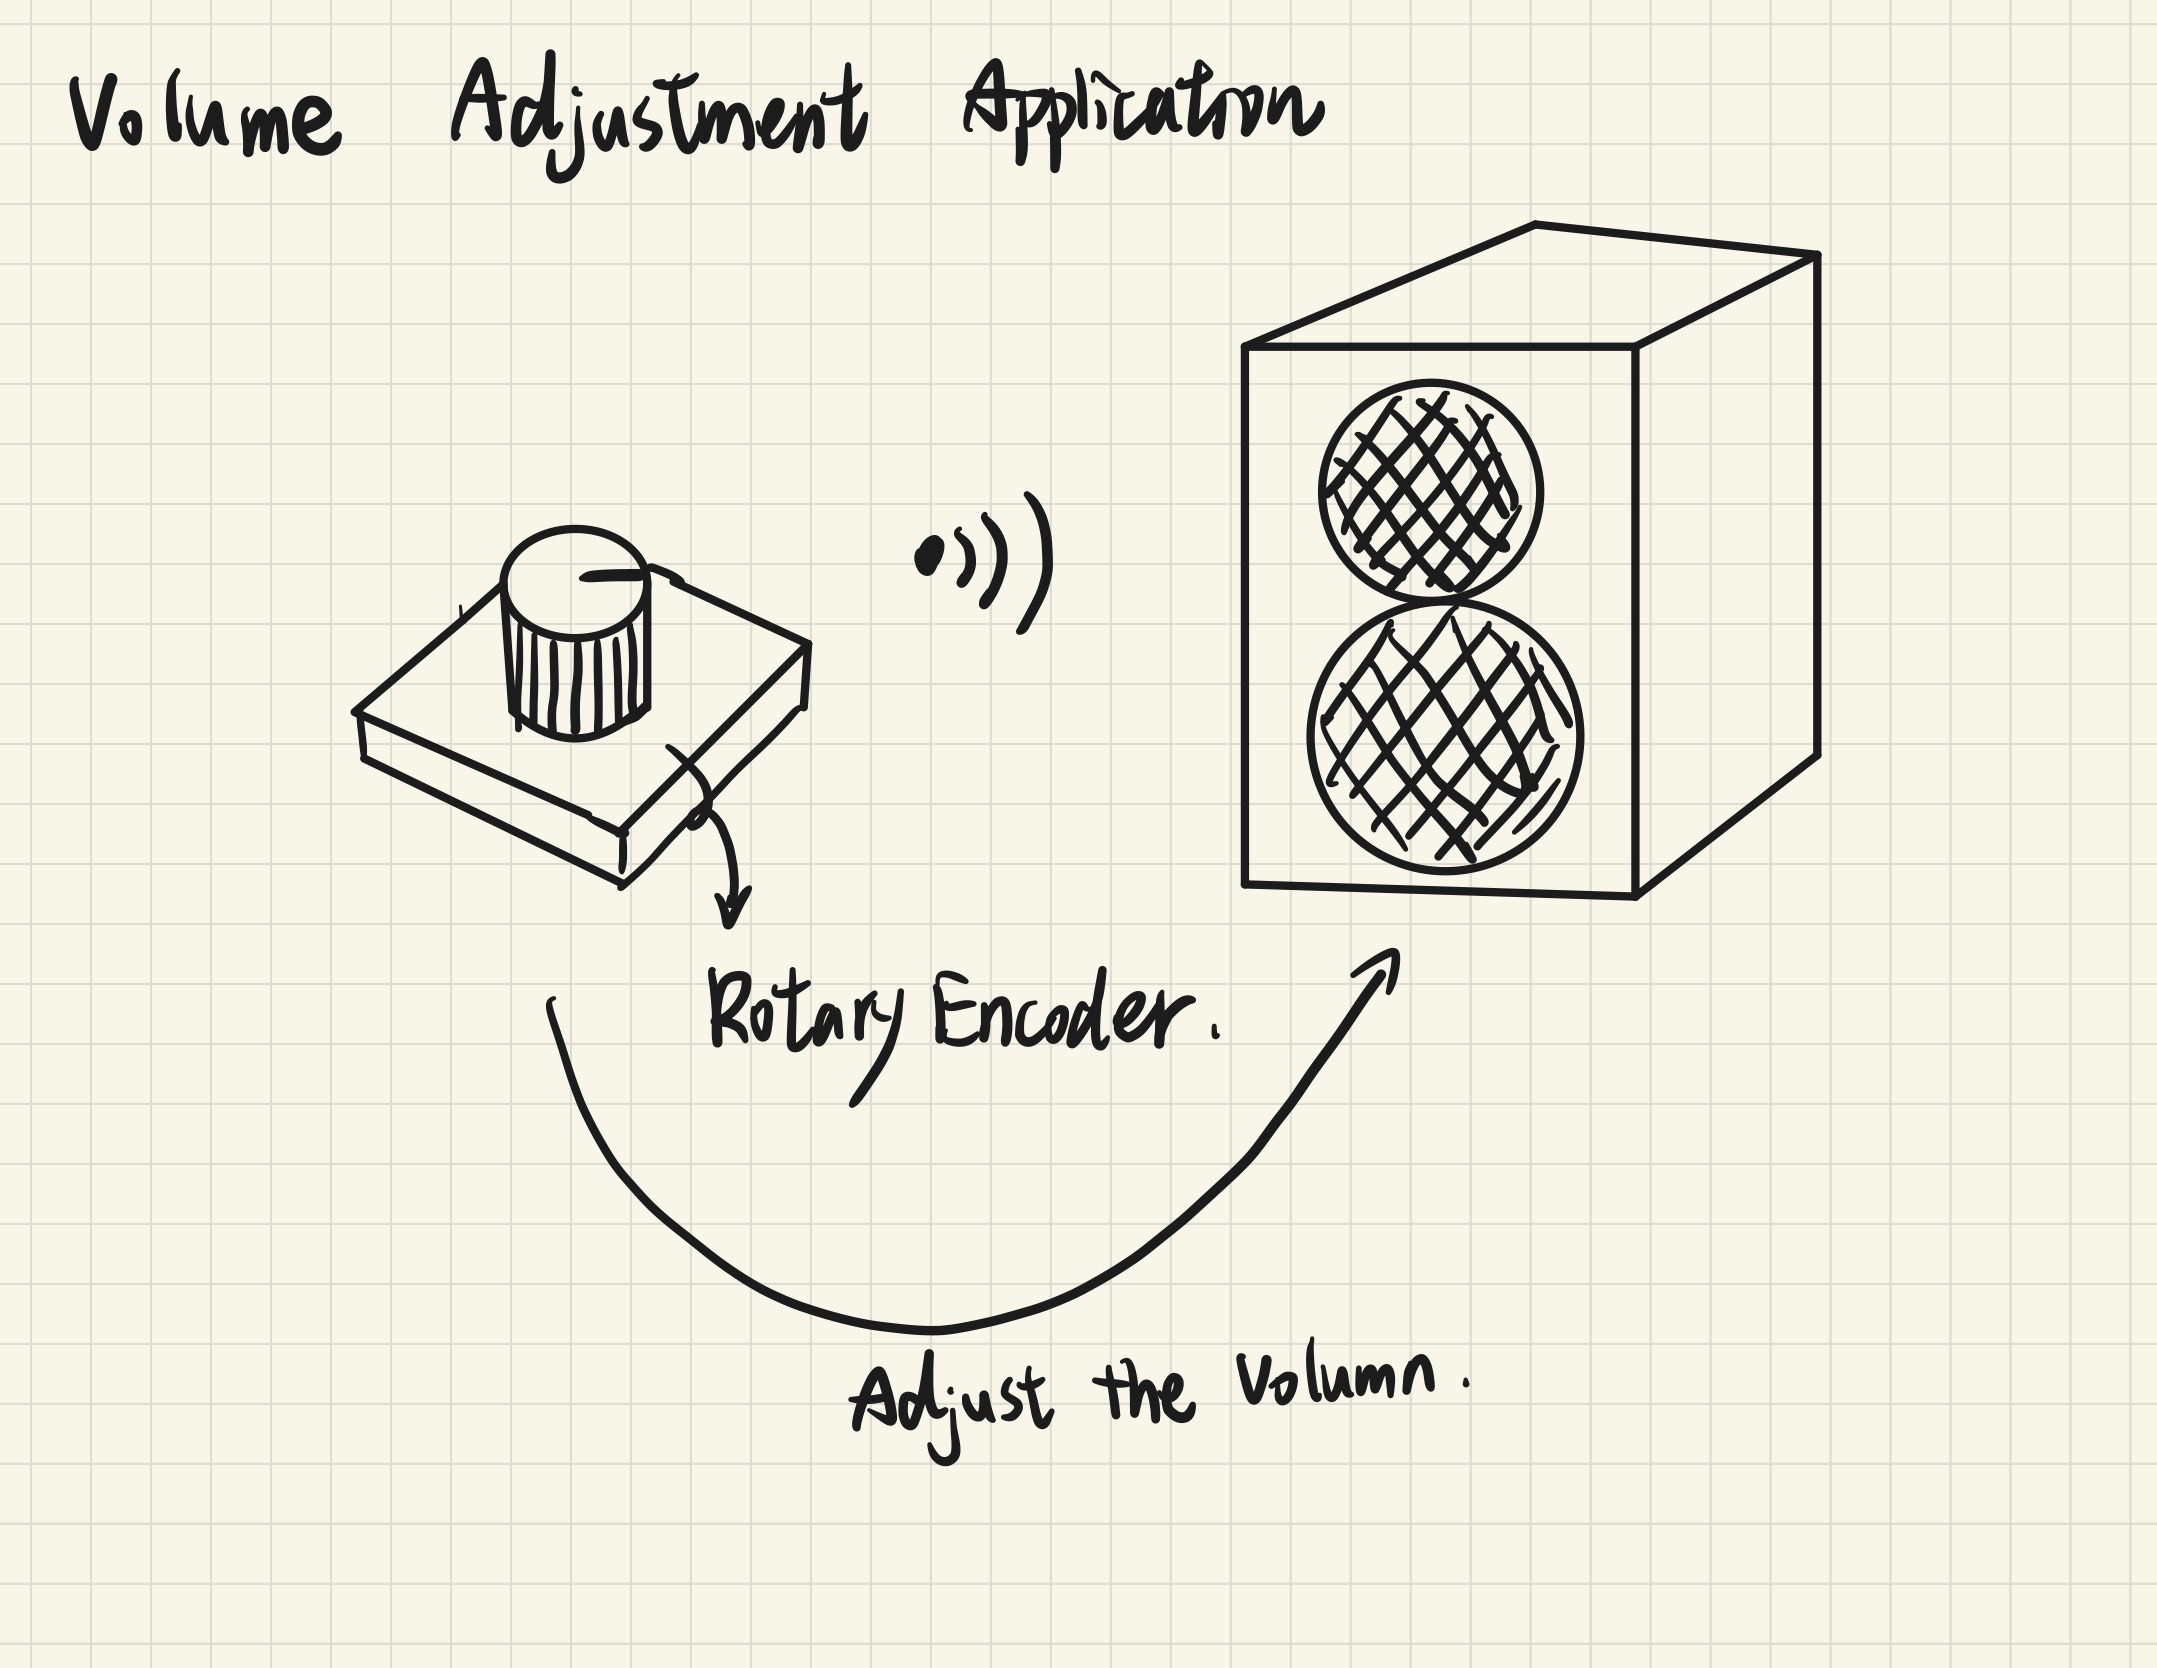 Volume Adjustment Application
Rotary Encoder.
Adjust the Volumn.